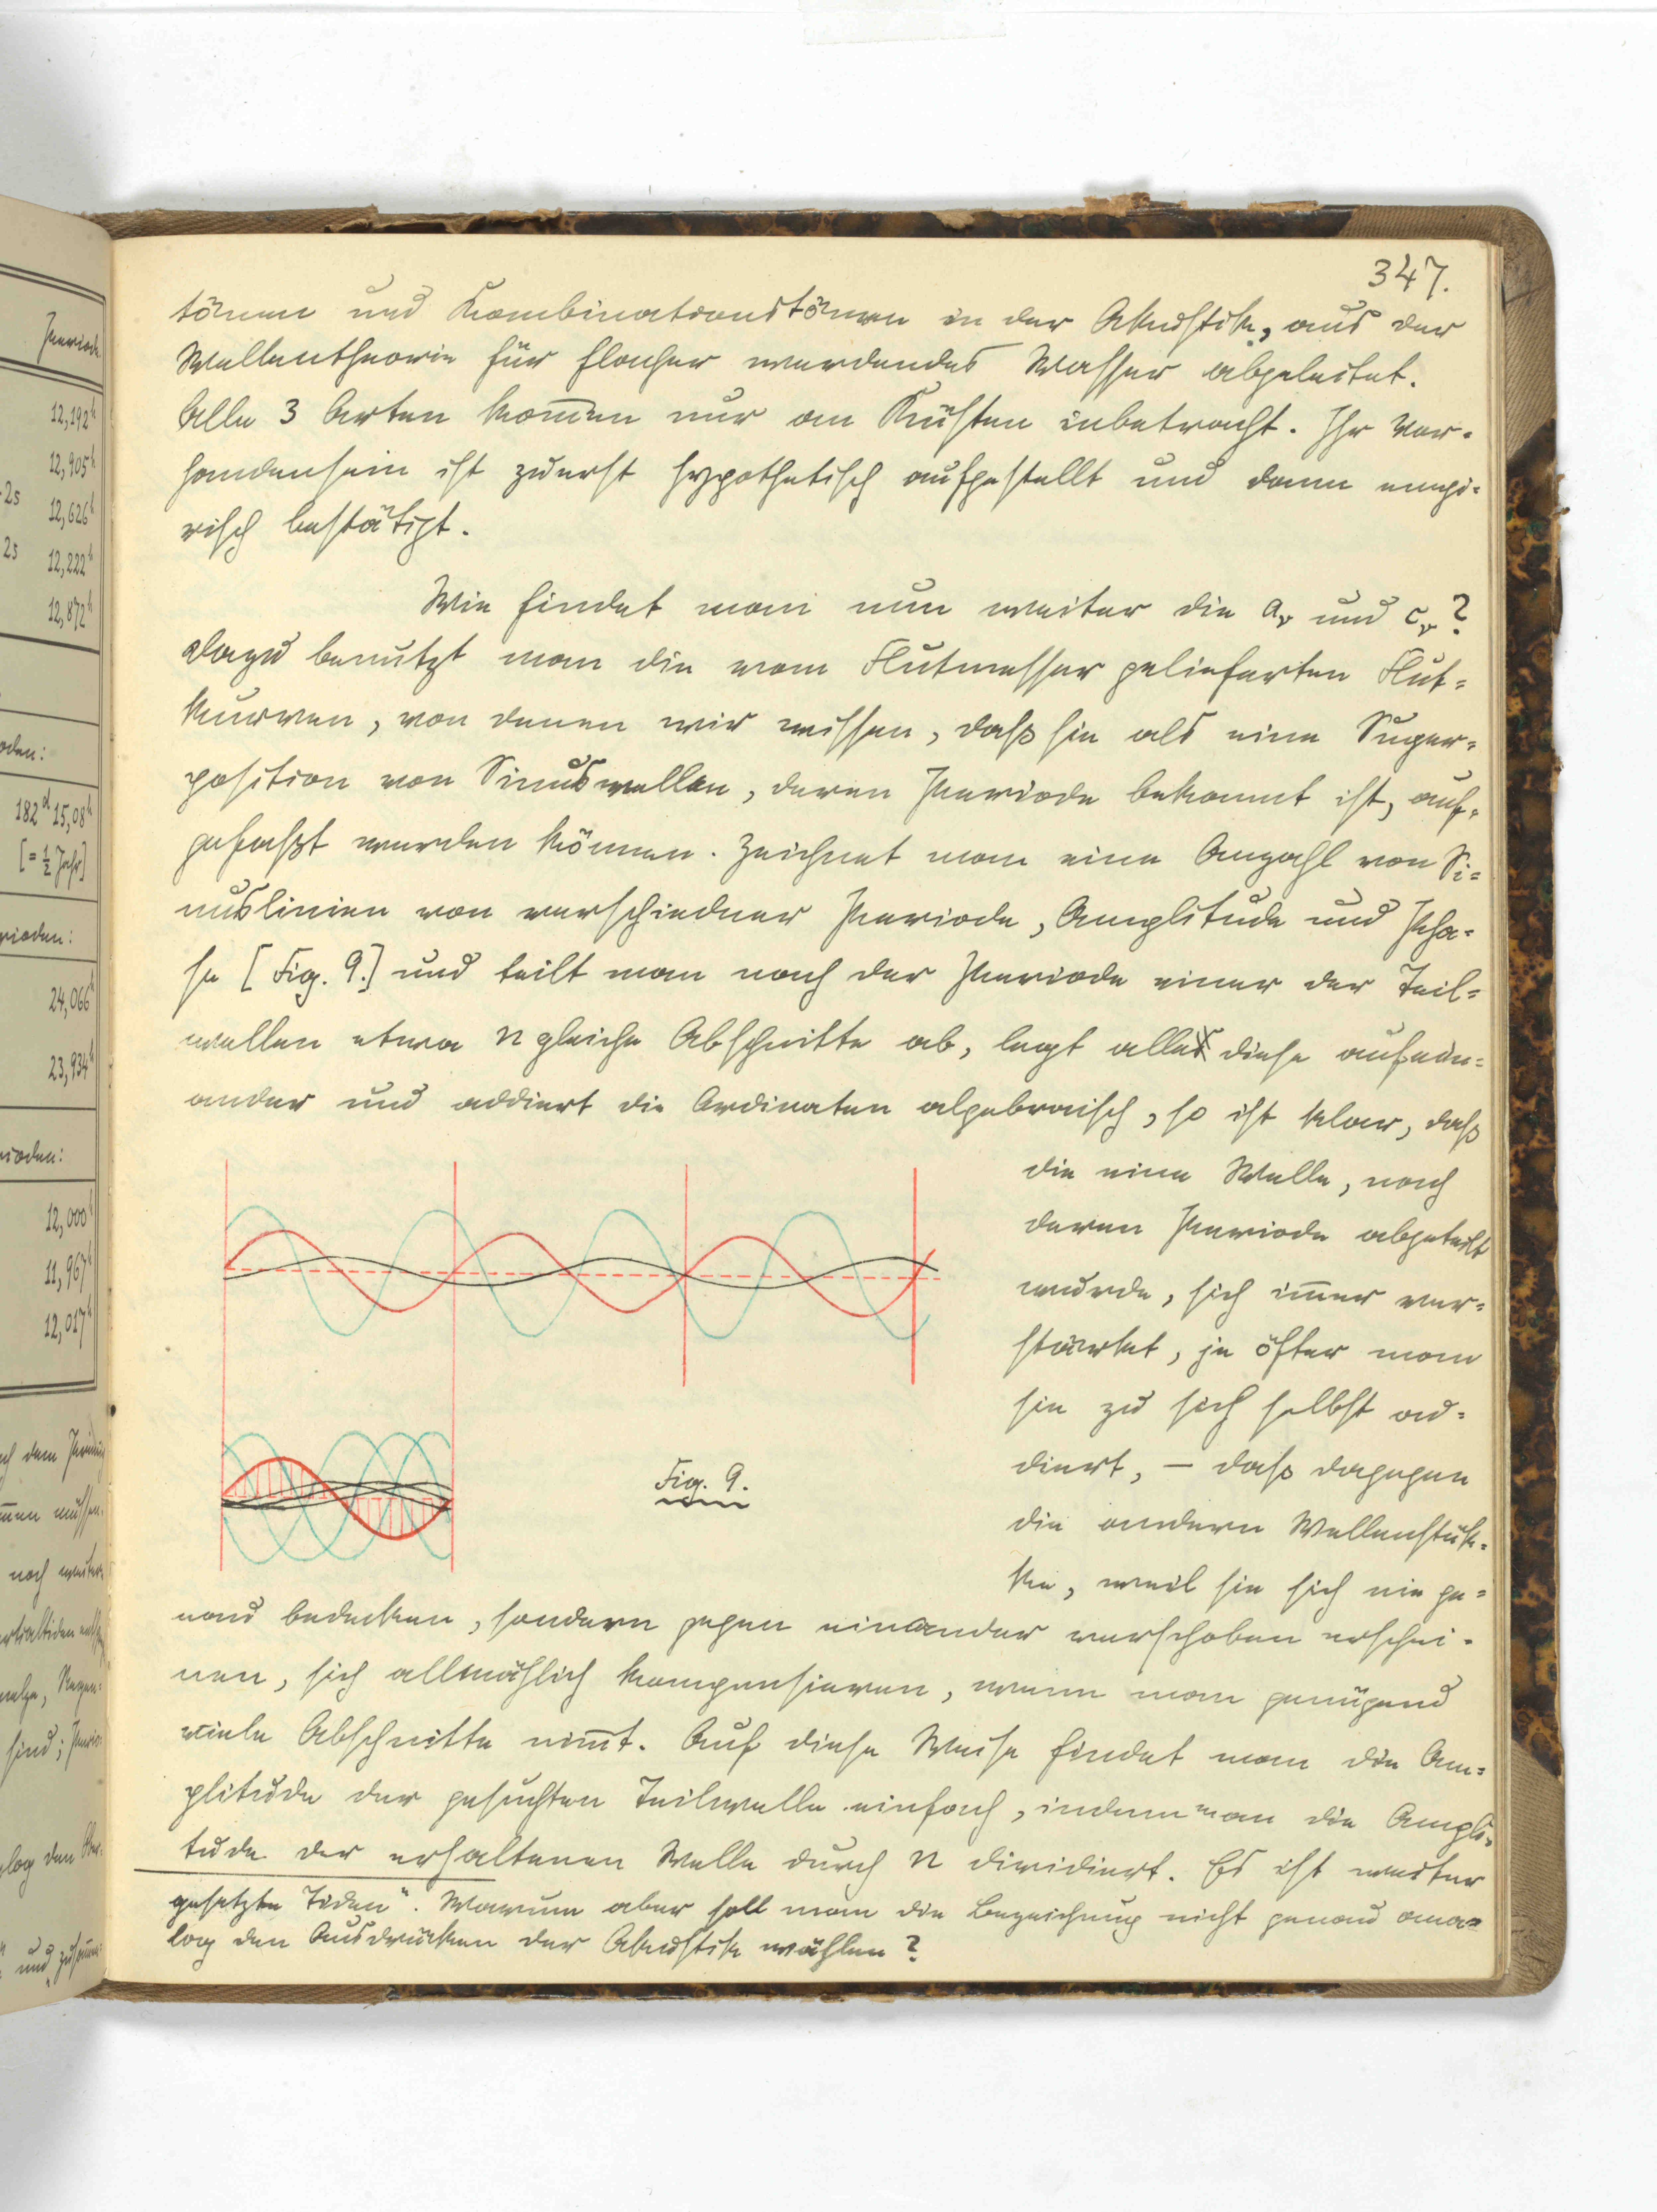 347.
tönen und Kombinationstönen in der Akustik, aus der
Wellentheorie für flacher werdendes Wasser abgeleitet.
Alle 3 Arten kom̅en nur an Küsten inbetracht. Ihr Vor-
handensein ist zuerst hypothetisch aufgestellt und dann empi-
risch bestätigt.
Wie findet man nun weiter die aᵥ und cᵥ?
Dazu benutzt man die vom Flutmesser gelieferten Flut-
kurven, von denen wir wissen, daß sie als eine Super-
position von Sinuswellen, deren Periode bekannt ist, auf-
gefaßt werden können. Zeichnet man eine Anzahl von Si-
nuslinien von verschiedner Periode, Amplitude und Pha-
se [Fig. 9.] und teilt man nach der Periode einer der Teil-
wellen etwa n gleiche Abschnitte ab, legt alle diese aufein-
ander und addiert die Ordinaten algebraisch, so ist klar, daß
die eine Welle, nach
deren Periode abgeteilt
wurde, sich im̅er ver-
stärket, je öfter man
sie zu sich selbst ad-
diert, – daß dagegen
die andern Wellenstük-
ke, weil sie sich nie ge-
Fig. 9.
nau bedecken, sondern gegen einander verschoben erschei-
nen, sich allmählich kompensieren, wenn man genügend
viele Abschnitte nim̅t. Auf diese Weise findet man die Am-
plitude der gesuchten Teilwelle einfach, indem man die Ampli-
tude der erhaltenen Welle durch n dividiert. Es ist weiter
gesetzte Tiden". Warum aber soll man die Bezeichnung nicht genau ana-
log den Ausdrücken der Akustik wählen?
Periode.
12,192ʰ
12,905ʰ
2s 12,626ʰ
2s 12,222ʰ
12,872ʰ
oden:
182ᵈ 15,08ʰ
[= ½ Jahr]
rioden:
24,066ʰ
23,934ʰ
rioden:
12,000ʰ
11,967ʰ
12,017ʰ